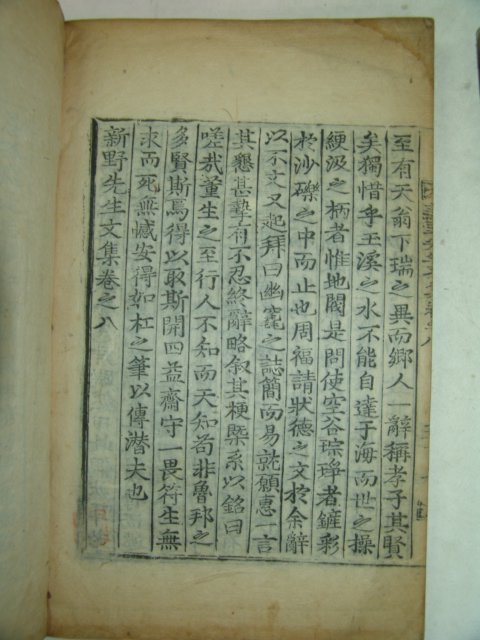 至有天翁下瑞之異而鄉人一辭稱孝子其賢
矣獨惜乎玉溪之水不能自達于海而世之操
綆汲之柄者惟地閥是問使空谷琮琤者鏟彩
於沙礫之中而止也周福請狀德之文於余辭
以不文又起拜曰幽竁之誌簡而易就願惠一言
其懇甚摯有不忍終辭略叙其梗槩系以銘曰
嗟哉董生之至行人不知而天知苟非魯邦之
多賢斯焉得以取斯開四益齋守一畏符生無
求而死無憾安得如杠之筆以傳潜夫也
新野先生文集卷之八